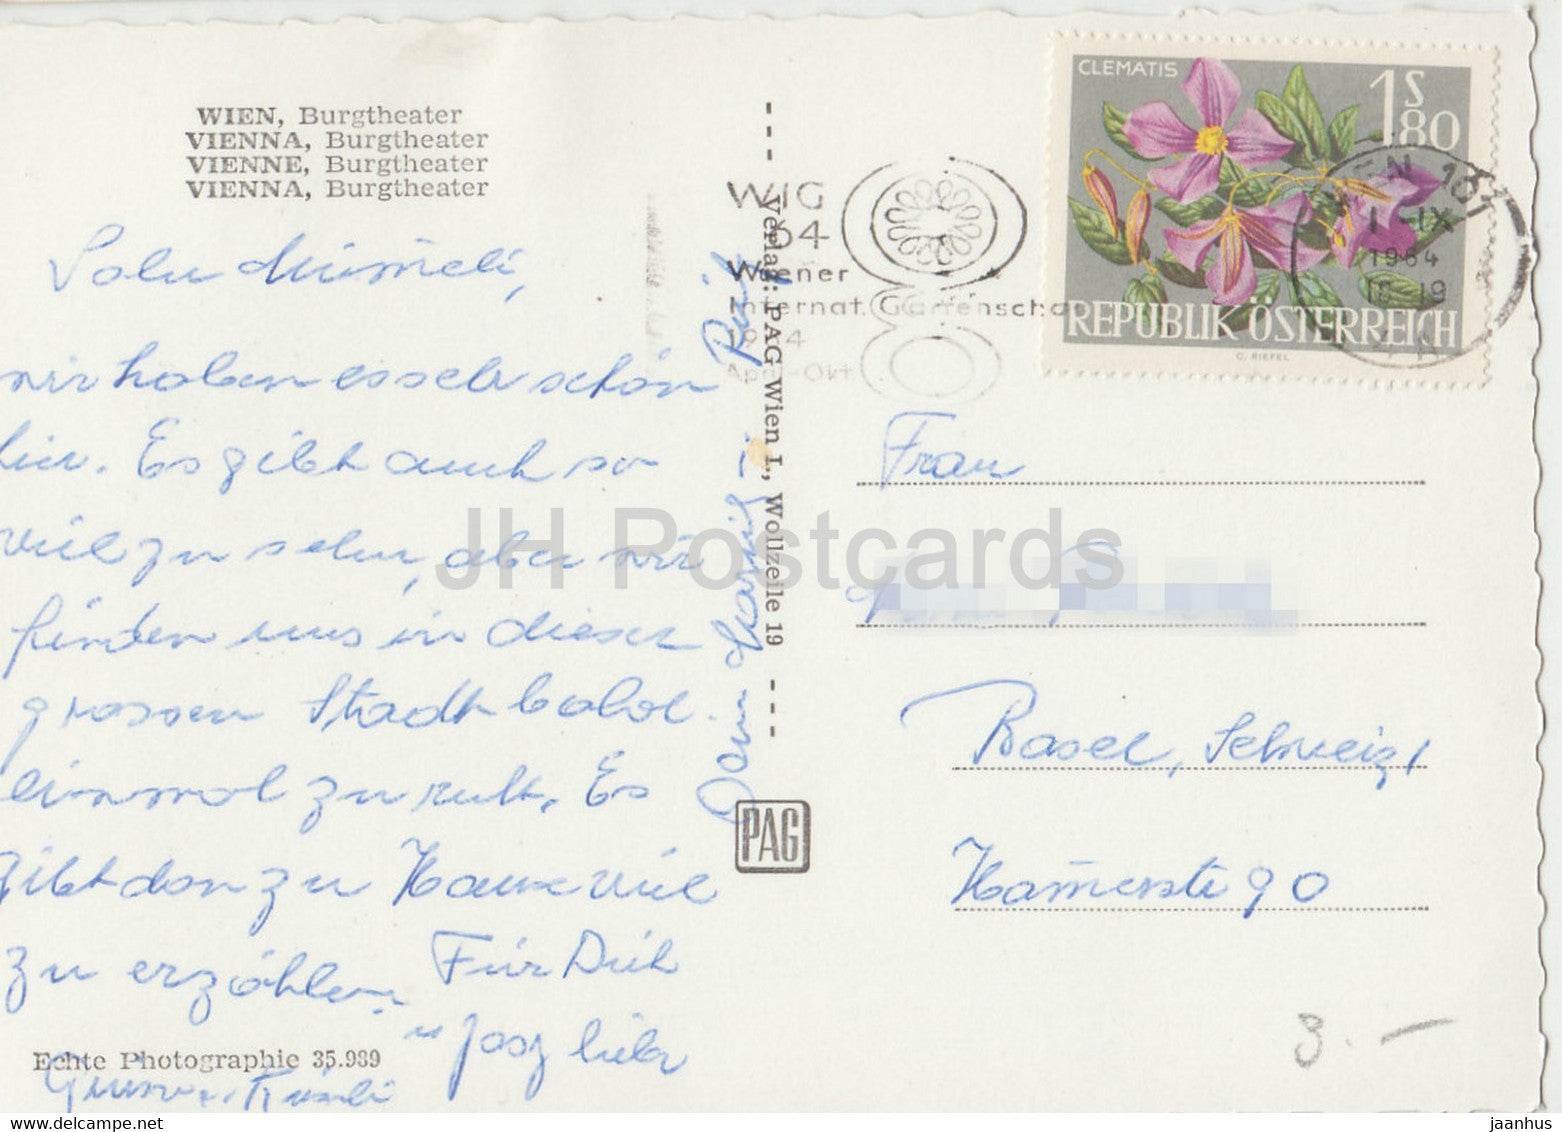 WIEN, Burgtheater
VIENNA, Burgtheater
VIENNE, Burgtheater
VIENNA, Burgtheater
Salu Mümeli,
wir haben es sehr schön
hier. Es gibt auch so
viel zu sehen, aber wir
finden uns in dieser
grossen Stadt bald
einmal zurecht. Es
gibt dan zu Hause viel
zu erzählen. Für Dich
u lieber
Echte Photographie 35.989
Verlag: PAG Wien I., Wollzeile 19
PAG
WIG
64
Wiener
Internat. Gartenschau
1964
Apr.-Okt.
CLEMATIS
1S80
REPUBLIK ÖSTERREICH
WIEN 101
1.-IX
1964
18-19
Frau
Basel, Schweiz
90
3.-
JH Postcards
www.delcampe.net
jaanhus